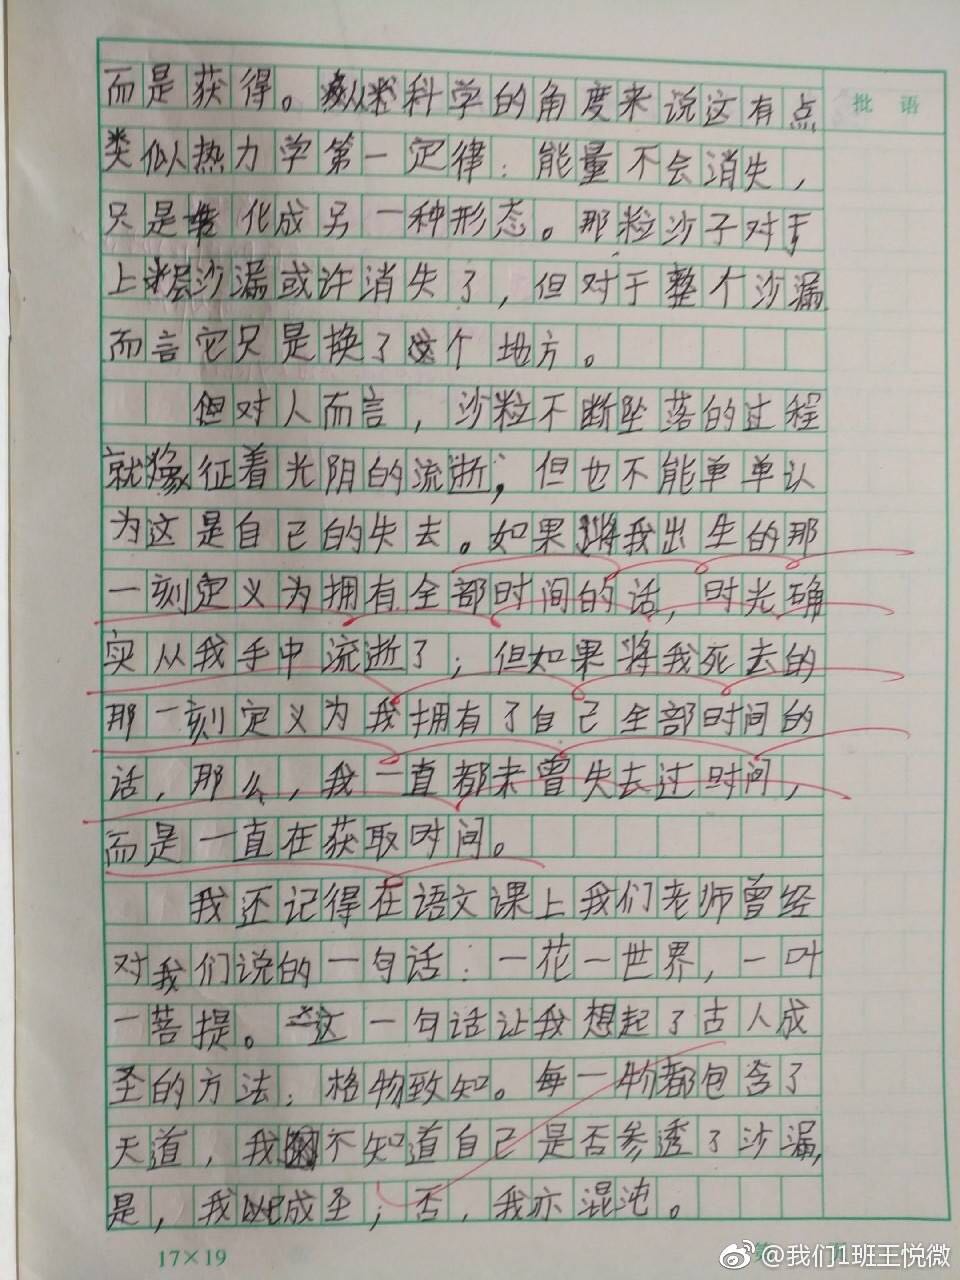 而是获得。从科学的角度来说这有点
批语
类似热力学第一定律：能量不会消失，
只是转化成另一种形态。那粒沙子对于
上层沙漏或许消失了，但对于整个沙漏
而言它只是换了这个地方。
但对人而言，沙粒不断坠落的过程
就像征着光阴的流逝；但也不能单单认
为这是自己的失去。如果将我出生的那
一刻定义为拥有全部时间的话，时光确
实从我手中流逝了；但如果将我死去的
那一刻定义为我拥有了自己全部时间的
话，那么，我一直都未曾失去过时间，
而是一直在获取时间。
我还记得在语文课上我们老师曾经
对我们说的一句话：一花一世界，一叶
一菩提。这一句话让我想起了古人成
圣的方法：格物致知。每一物都包含了
天道，我不知道自己是否参透了沙漏，
是，我已成圣；否，我亦混沌。
17×19
第 页
@我们1班王悦微